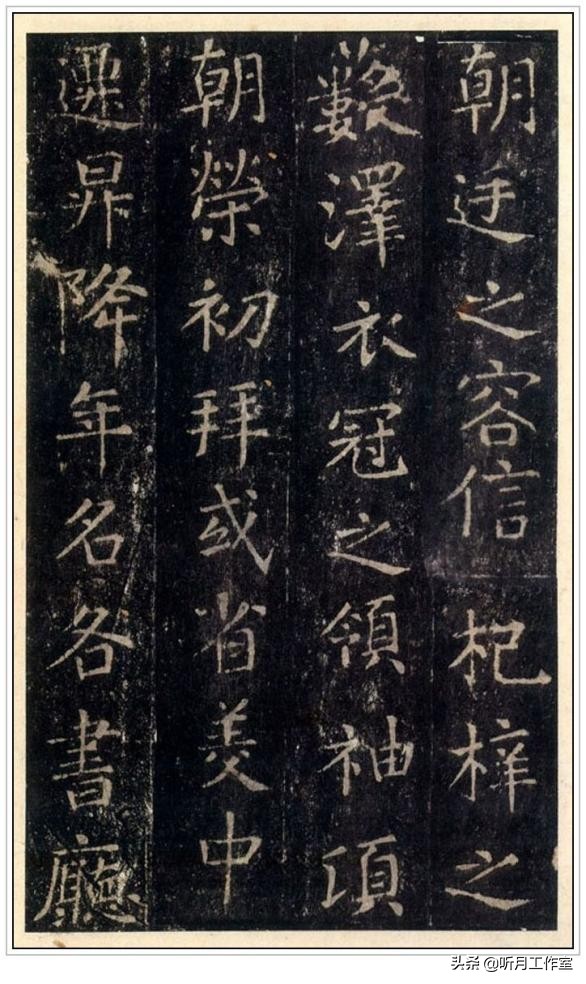 朝廷之容信杞梓之
藪澤衣冠之領袖項
朝榮初拜或省羑中
遷昇降年名各書廳
头条 @听月工作室